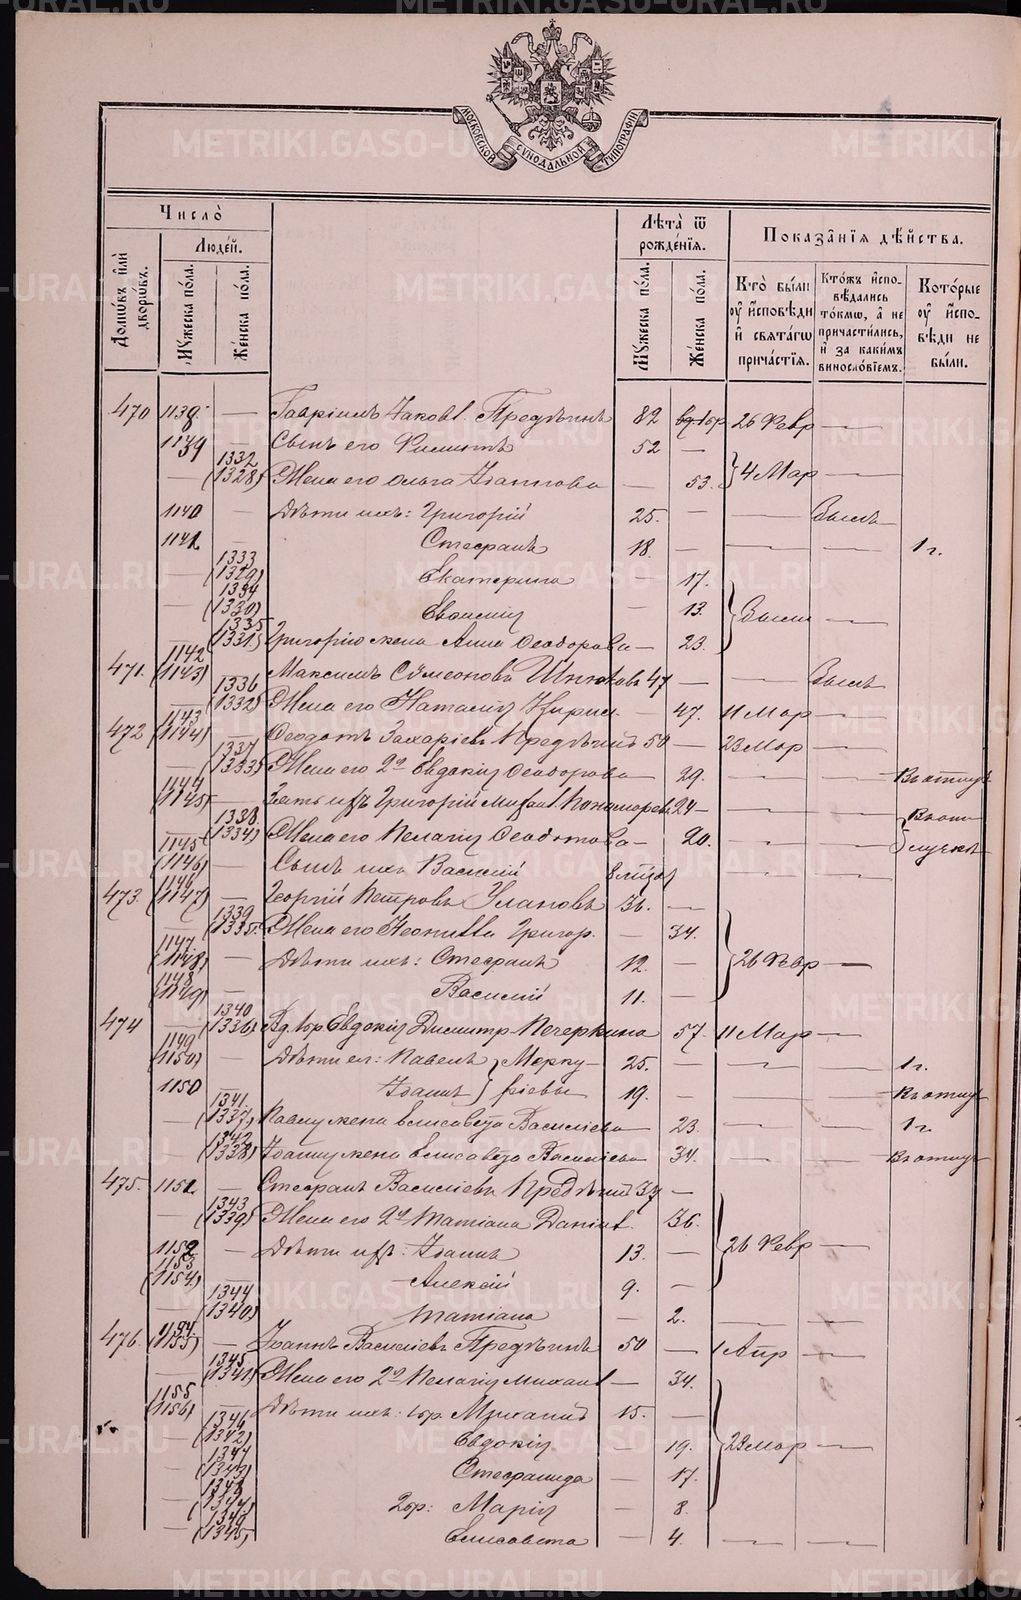 METRIKI.GASO-URAL.RU
МОСКОВСКОЙ СѴНОДАЛЬНОЙ ТИПОГРАФІИ
Число̀
Людей.
Домѡвъ и҆лѝ дворѡвъ.
Мꙋжеска по́ла.
Же́нска по́ла.
Лѣта̀ ѿ рожде́нїѧ.
Мꙋжеска по́ла.
Же́нска по́ла.
Показа̑нїѧ дѣ́йства.
Кто̀ бы́ли оу҆ и҆сповѣди и҆ свѧта́гѡ причастїѧ.
Кто́жъ и҆сповѣдались то́кмѡ, а҆ не причастились, и҆ за какимъ винослові́емъ.
Кото́рые оу҆ и҆споvѣди не бы́ли.
470 1138 — Гавріилъ Іаковл. Предѣинъ 82 вд. 1бр 26 Февр —
1139 — Сынъ его Филиппъ 52 —
— 1332 (1328) Жена его Ольга Іоаннова — 53. 4 Мар —
1140 — Дѣти ихъ: Григорій 25. — —
1141 Стефанъ 18. — — — 1 г.
— 1333 (1329) Екатерина — 17.
— 1334 (1330) — 13.
1335 (1331) Григорію жена Анна Ѳеодорова — 23.
471. 1142 (1143) Максимъ Сѵмеоновъ 47 — —
1336 (1332) Жена его Наталія — 47. 11 Мар —
472 1143 (1144) — Ѳеодотъ Захаріевъ 50 — 23 Мар —
1337 (1333) Жена его 2о Евдокія Ѳеодорова — 29. — —
1144 (1145) — Зять ихъ Григорій Михаил. Пономаревъ 24 —
1338 (1334) Жена его Пелагія Ѳеодотова — 20. — — лучкѣ
1145 (1146) — Сынъ ихъ Василій — —
473. 1146 (1147) — Георгій Петровъ Улановъ 36. —
1339 (1335) Жена его Неонилла Григор. — 34.
1147. (1148) — Дѣти ихъ: Стефанъ 12. — 26 Февр —
1148 (1149) — Василій 11. —
474 — 1340 (1336) Вд. 1бр Евдокія Димитр. Печеркина 57. 11 Мар —
1149 (1150) — Дѣти ея: Павелъ } Мерку- 25. — — — 1 г.
1150 — Іоаннъ } ріевы 19. — — —
— 1341. (1337) Павлу жена Елисавета Васильева — 23. — — 1 г.
— 1342 (1338) Іоанну жена Елисавета Васильева — 34. — —
475. 1151 — Стефанъ Василіевъ 37 —
— 1343 (1339) Жена его 2о Татіана Даніил. 36.
1152 — Дѣти ихъ: Іоаннъ 13. — 26 Февр —
1153 (1154) Алексій 9. —
— 1344 (1340) Татіана — 2. — —
476. 1154 (1155) — Іоаннъ Василіевъ Предѣинъ 50 — 1 Апр —
— 1345 (1341) Жена его 2о Пелагія Михаил — 34.
1155 (1156) — Дѣти ихъ: 1бр. Михаилъ 15. —
— 1346 (1342) Евдокія — 19. 23 Мар —
— 1347 (1343) Стефанида — 17.
— 1348 (1344) 2бр: Марія — 8.
— 1349 (1345) Елисавета — 4. — —